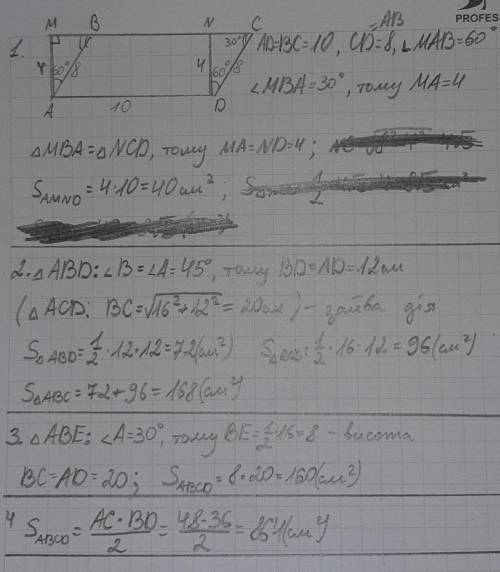 PROFES
M B N C
1. 4 60° 8 4 60° 8 30°
A 10 D
AD=BC=10, CD=AB=8, ∠MAB=60°
∠MBA=30°, тому MA=4
△MBA=△NCD, тому MA=ND=4;
S_AMND = 4·10=40см²;
2. △ABD: ∠B=∠A=45°, тому BD=AD=12см
(△ACD: BC=√16²+12² = 20см) – зайва дія
S△ABD=1/2·12·12=72(см²) S△BCD: 1/2·16·12=96(см²)
S△ABC=72+96=168(см²)
3. △ABE: ∠A=30°, тому BE=1/2·16=8 – висота
BC=AD=20; S_ABCD=8·20=160(см²)
4 S_ABCD = AC·BD/2 = 48·36/2 = 864(см²)